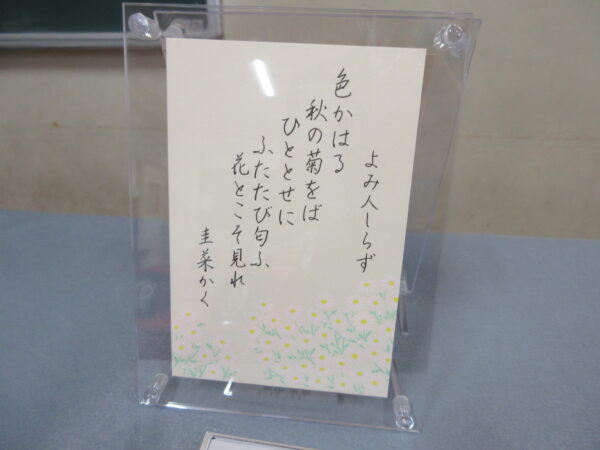 よみ人しらず
色かはる
秋の菊をば
ひととせに
ふたたび匂ふ
花とこそ見れ
圭菜かく